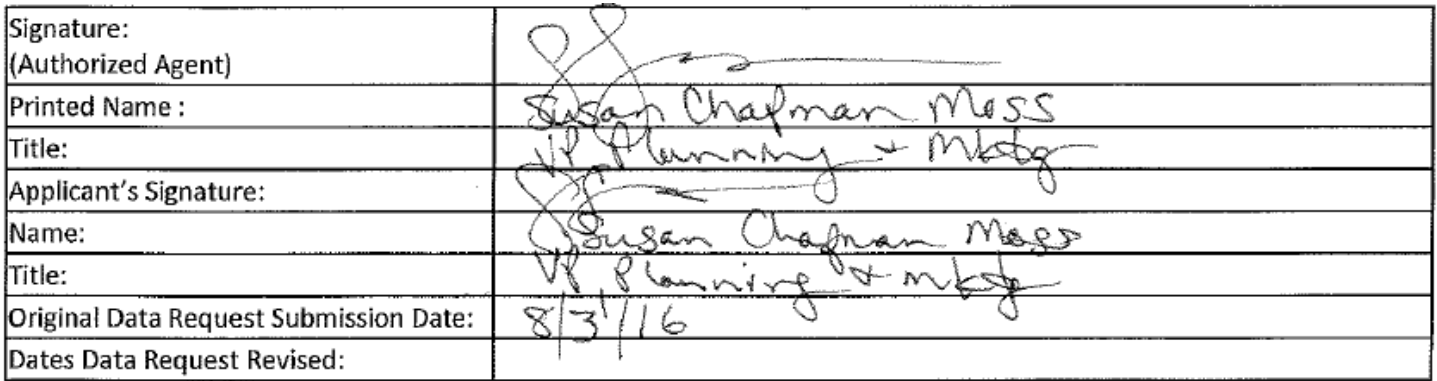 Signature:
(Authorized Agent)
Printed Name : Susan Chapman Moss
Title: VP Planning + Mktg
Applicant's Signature:
Name: Susan Chapman Moss
Title: VP, Planning + mktg
Original Data Request Submission Date: 8/3/16
Dates Data Request Revised: